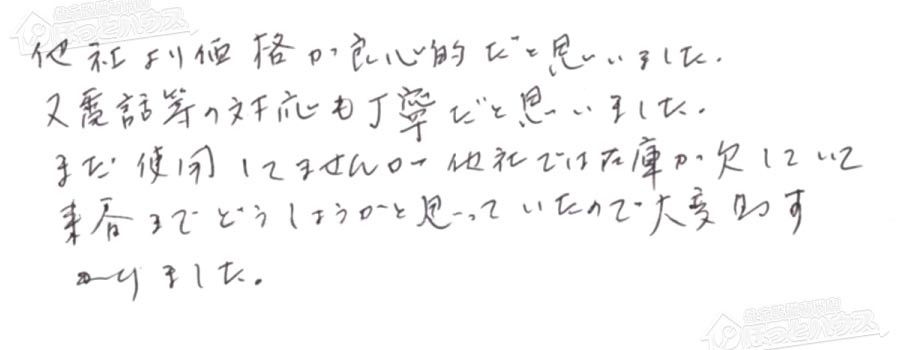 他社より価格が良心的だと思いました。
又電話等の対応も丁寧だと思いました。
まだ使用してませんが他社では在庫が欠していて
来春までどうしようかと思っていたので大変助す
かりました。
ほっとハウス
ほっとハウス